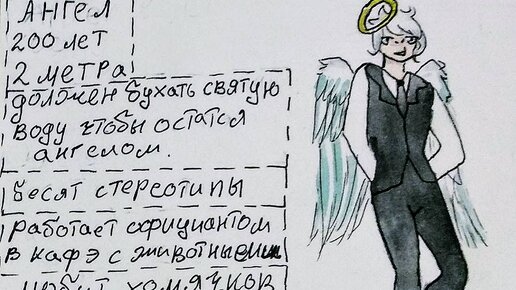 Ангел
200 лет
2 метра
должен бухать святую
воду чтобы остатся
ангелом.
бесят стереотипы
работает официантом
в кафэ с животными
любит хомячков